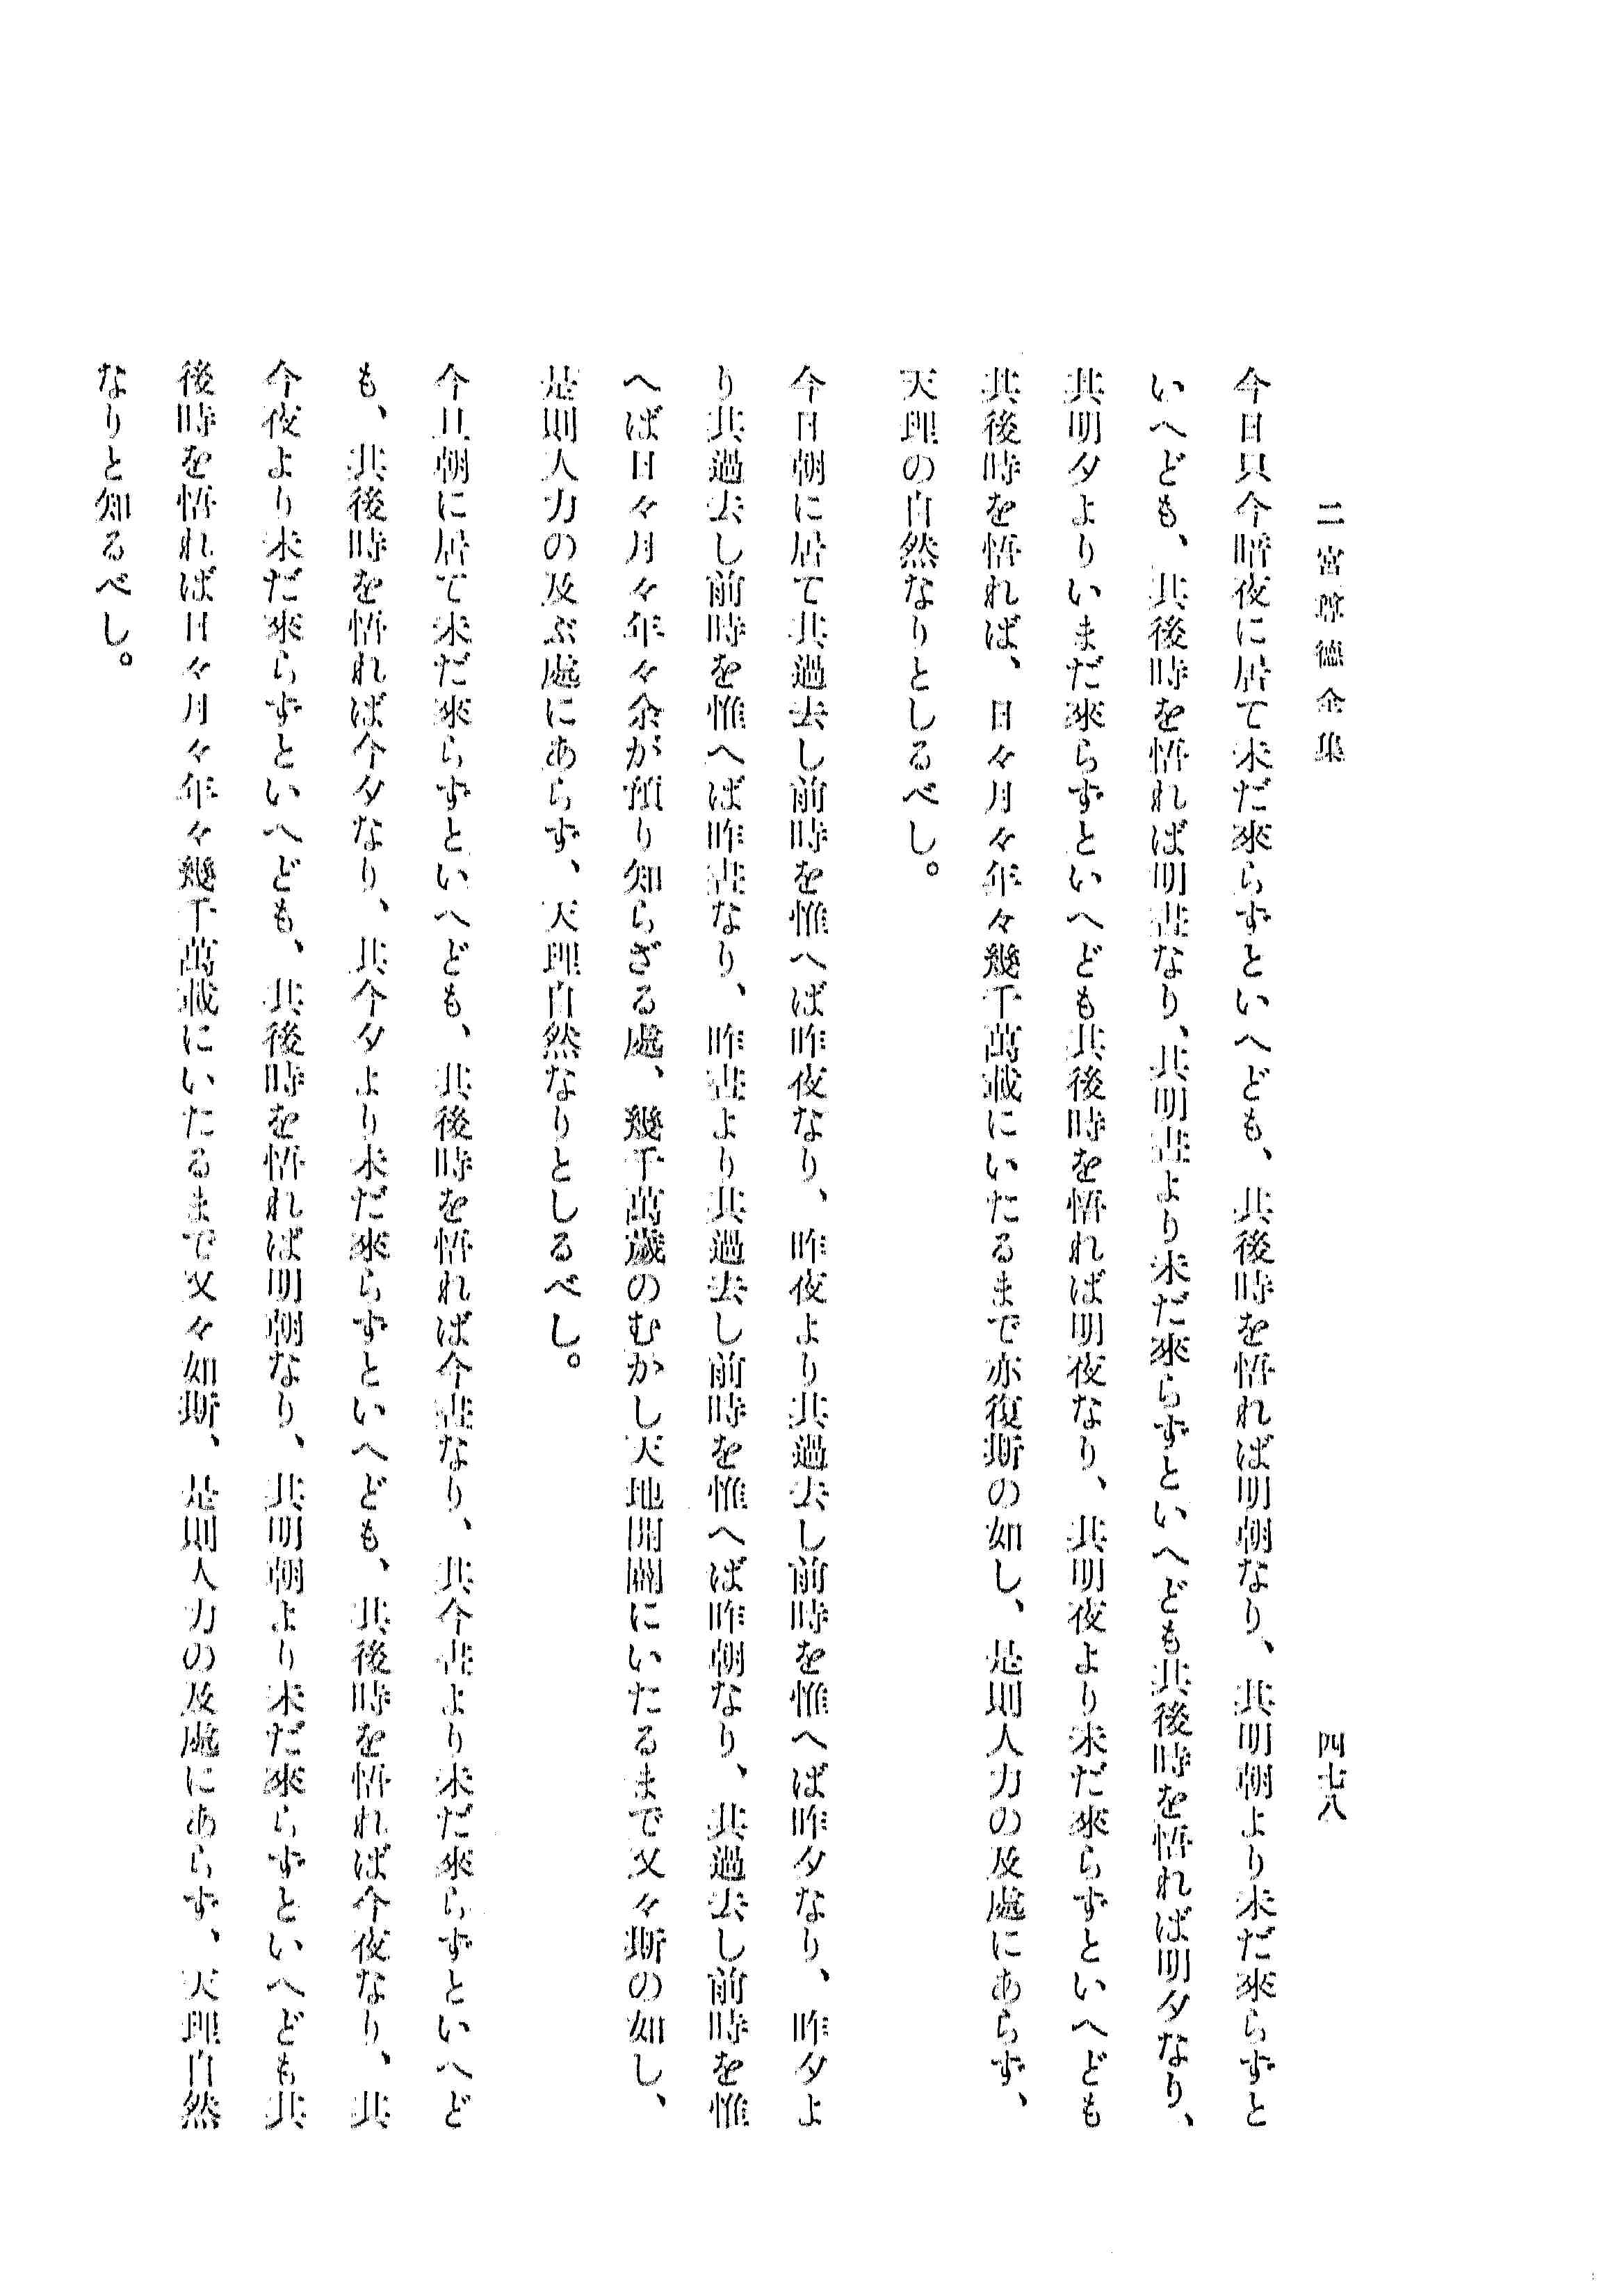 二宮尊德全集
四七八
今日只今暗夜に居て未だ來らずといへども、其後時を悟れば明朝なり、其明朝より未だ來らずと
いへども、其後時を悟れば明晝なり、其明晝より未だ來らずといへども其後時を悟れば明夕なり、
其明夕よりいまだ來らずといへども其後時を悟れば明夜なり、其明夜より未だ來らずといへども
其後時を悟れば、日々月々年々幾千萬載にいたるまで亦復斯の如し、是則人力の及處にあらず、
天理の自然なりとしるべし。
今日朝に居て其過去し前時を惟へば昨夜なり、昨夜より其過去し前時を惟へば昨夕なり、昨夕よ
り其過去し前時を惟へば昨晝なり、昨晝より其過去し前時を惟へば昨朝なり、其過去し前時を惟
へば日々月々年々余が預り知らざる處、幾千萬歲のむかし天地開闢にいたるまで又々斯の如し、
是則人力の及ぶ處にあらず、天理自然なりとしるべし。
今且朝に居て未だ來らずといへども、其後時を悟れば今晝なり、其今晝より未だ來らずといへど
も、其後時を悟れば今夕なり、其今夕より未だ來らずといへども、其後時を悟れば今夜なり、其
今夜より未だ來らずといへども、其後時を悟れば明朝なり、其明朝より未だ來らずといへども其
後時を悟れば日々月々年々幾千萬載にいたるまで又々如斯、是則人力の及處にあらず、天理自然
なりと知るべし。